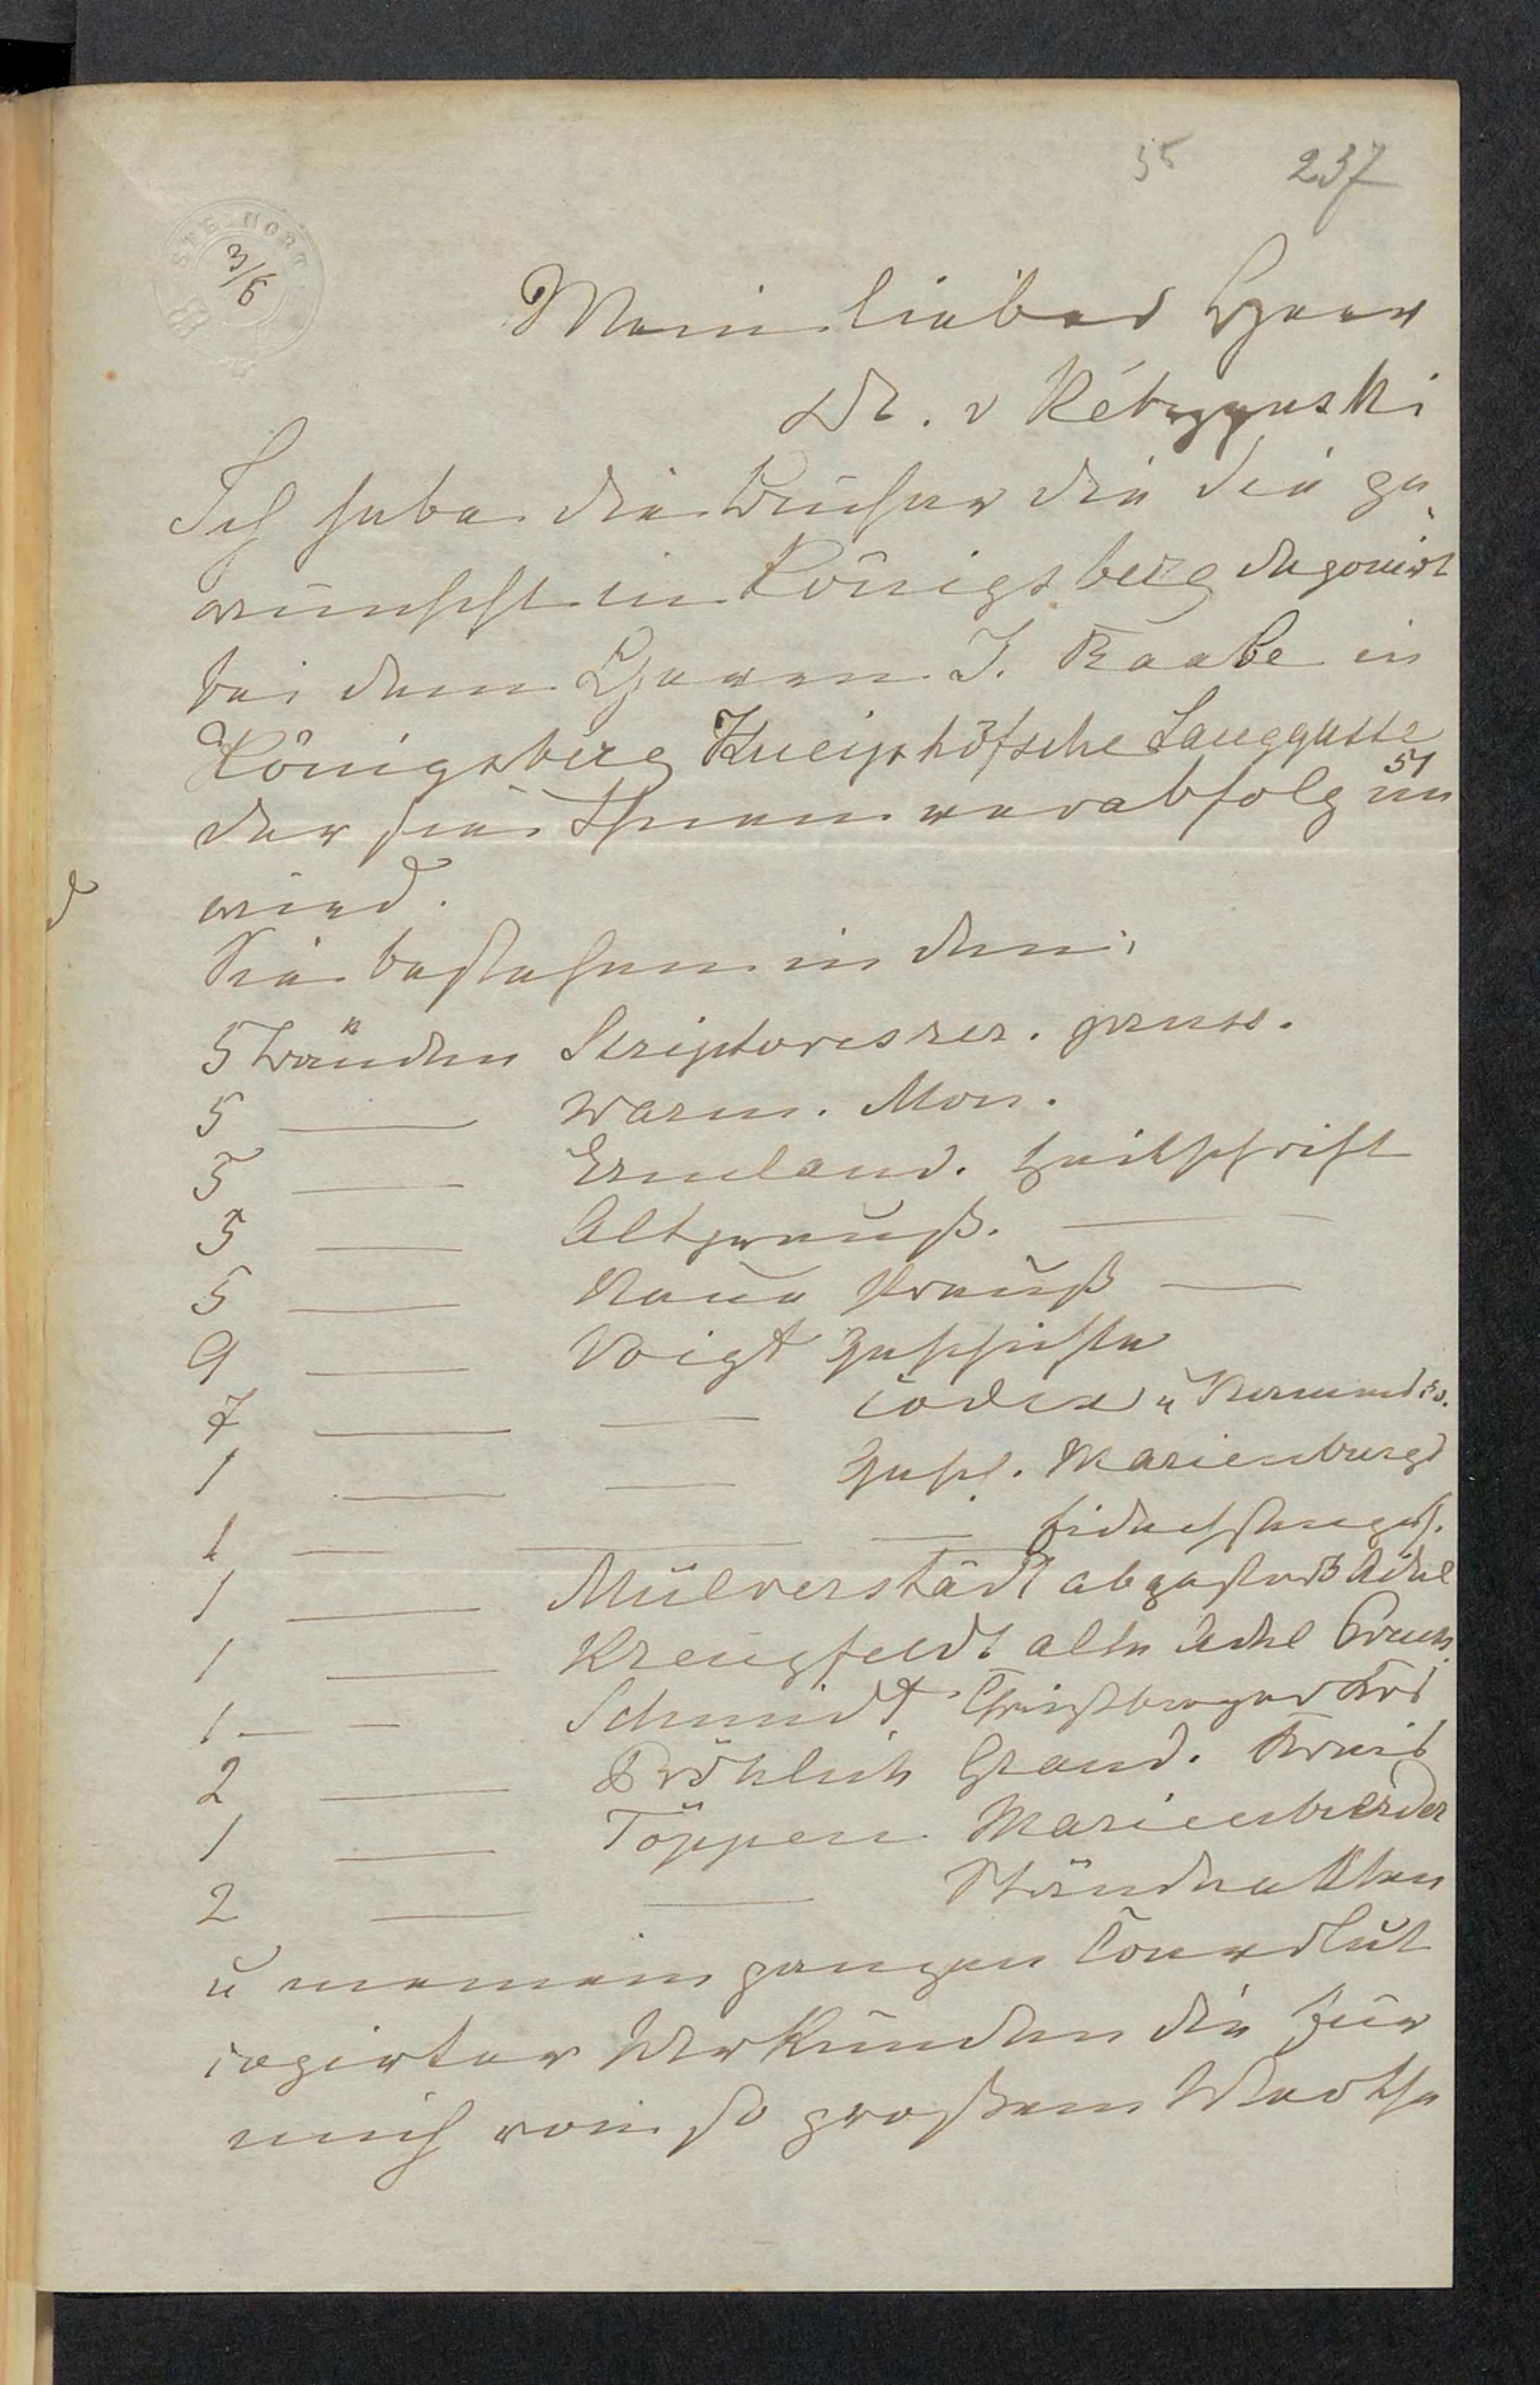 55 237
STEINORT
3/6
Mein lieber Herr
Dr. v Kétrzynski
Ich habe die Bücher die Sie ge¬
wünscht in Königsberg deponirt
bei dem Herren J. Raabe in
Königsberg Kneiphöfsche Langgasse
51
der sie Ihnen verabfolgen
wird.
Sie bestehen in den:
5 Bänden Scriptores rer. pruss.
5 — Warm. Mon.
5 — Ermland. Zeitschrift
5 — Altpreuß. —
5 — Neue Preuß —
9 — Voigt Geschichte
7 — — Codex u
1 — — Gesch. Marienburgs
1 — — — Eidechsenges.
1 — Mülverstädt abgestorb Adel
1 — Kreuzfeldt alte Adel Preuß.
1 — — Schmidt
2 — Fröhlich Graud. Kreis
1 — Töppen Marienwerder
2 — — Ständeakten
u meinem ganzen Convolut
copirter Urkunden die für
mich von so großem Werthe